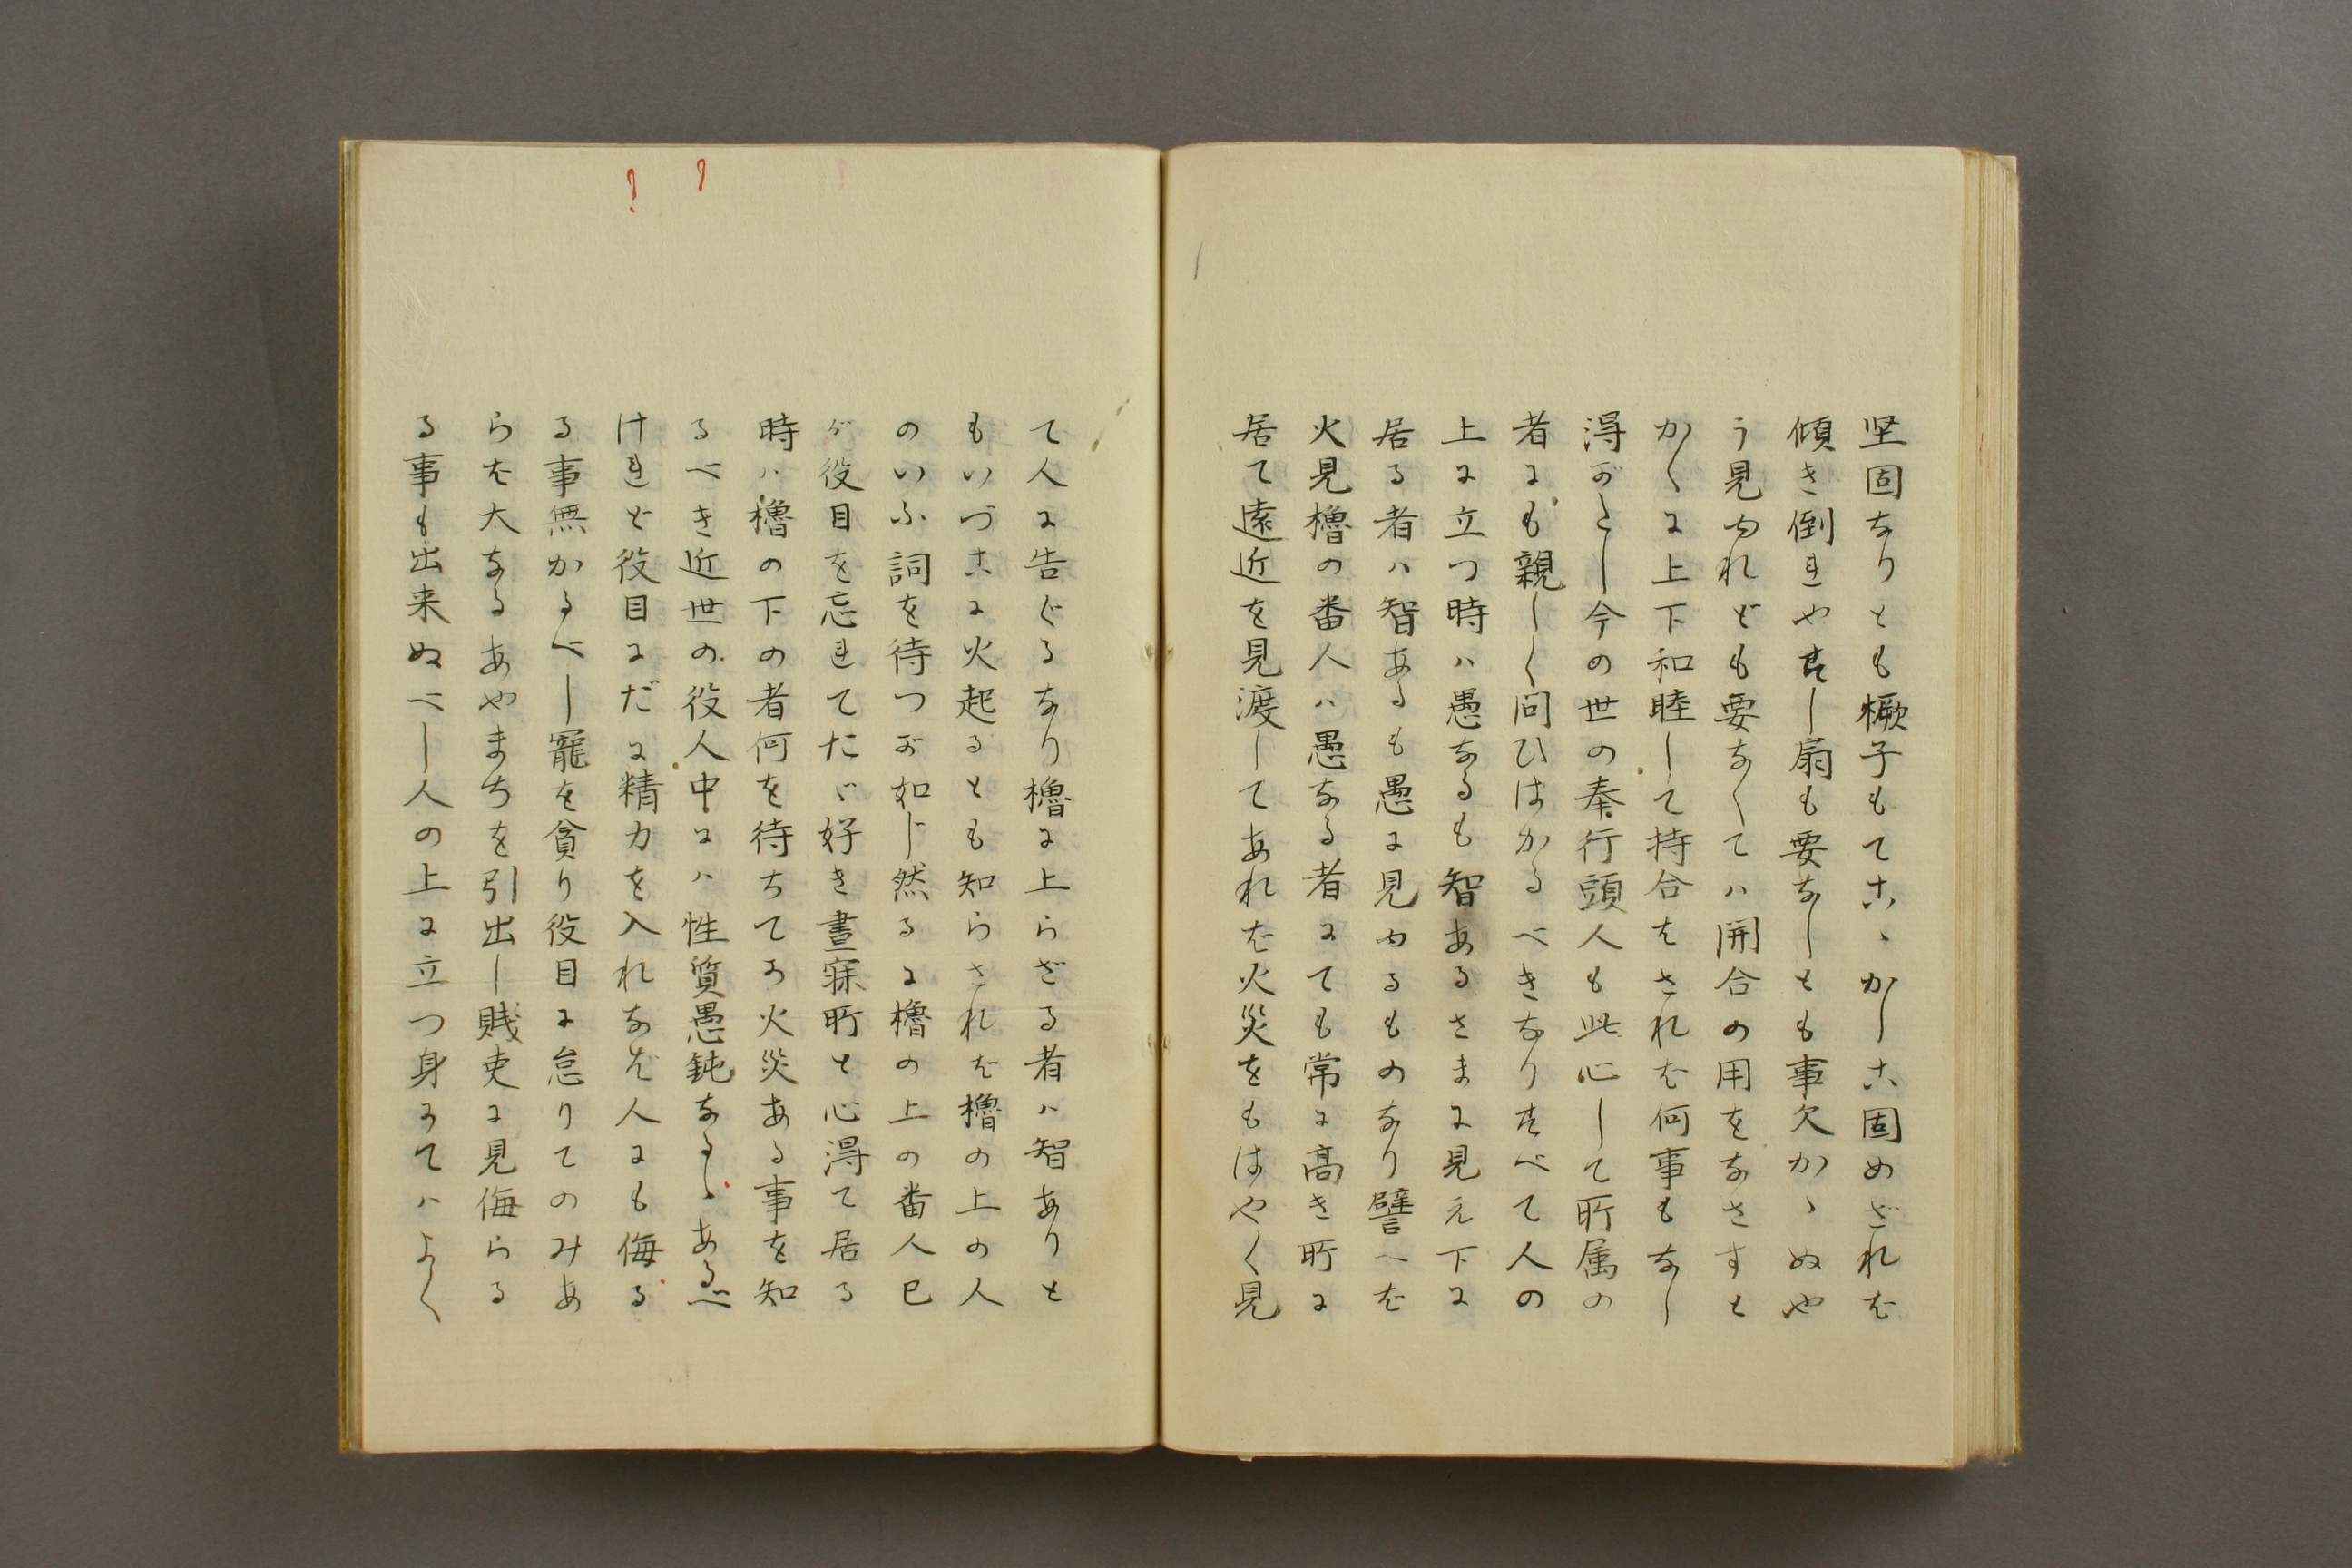 堅固なりとも橛子もてこゝかしこ固めざれば
傾き倒れやすし扇も要なしとも事欠かゝぬや
う見ゆれども要なくてハ開合の用をなさすと
かくに上下和睦して持合をされば何事もなし
得がたし今の世の奉行頭人も此心して所属の
者にも親しく問ひはかるべきなりすべて人の
上に立つ時ハ愚なるも智あるさまに見え下に
居る者ハ智あるも愚に見ゆるものなり譬へば
火見櫓の番人ハ愚なる者にても常に高き所に
居て遠近を見渡してあれば火災をもはやく見
て人に告ぐるなり櫓に上らざる者ハ智ありと
もいづこに火起るとも知らされば櫓の上の人
のいふ詞を待つが如し然るに櫓の上の番人己
が役目を忘れてたゞ好き昼寐所と心得て居る
時ハ櫓の下の者何を待ちてか火災ある事を知
るべき近世の役人中にハ性質愚鈍なるしゝあるべ
けれど役目にだに精力を入れなば人にも侮る
る事無かるべし寵を貪り役目に怠りてのみあ
らば大なるあやまちを引出し賤吏に見侮らる
る事も出来ぬべし人の上に立つ身にてハよく
？
？